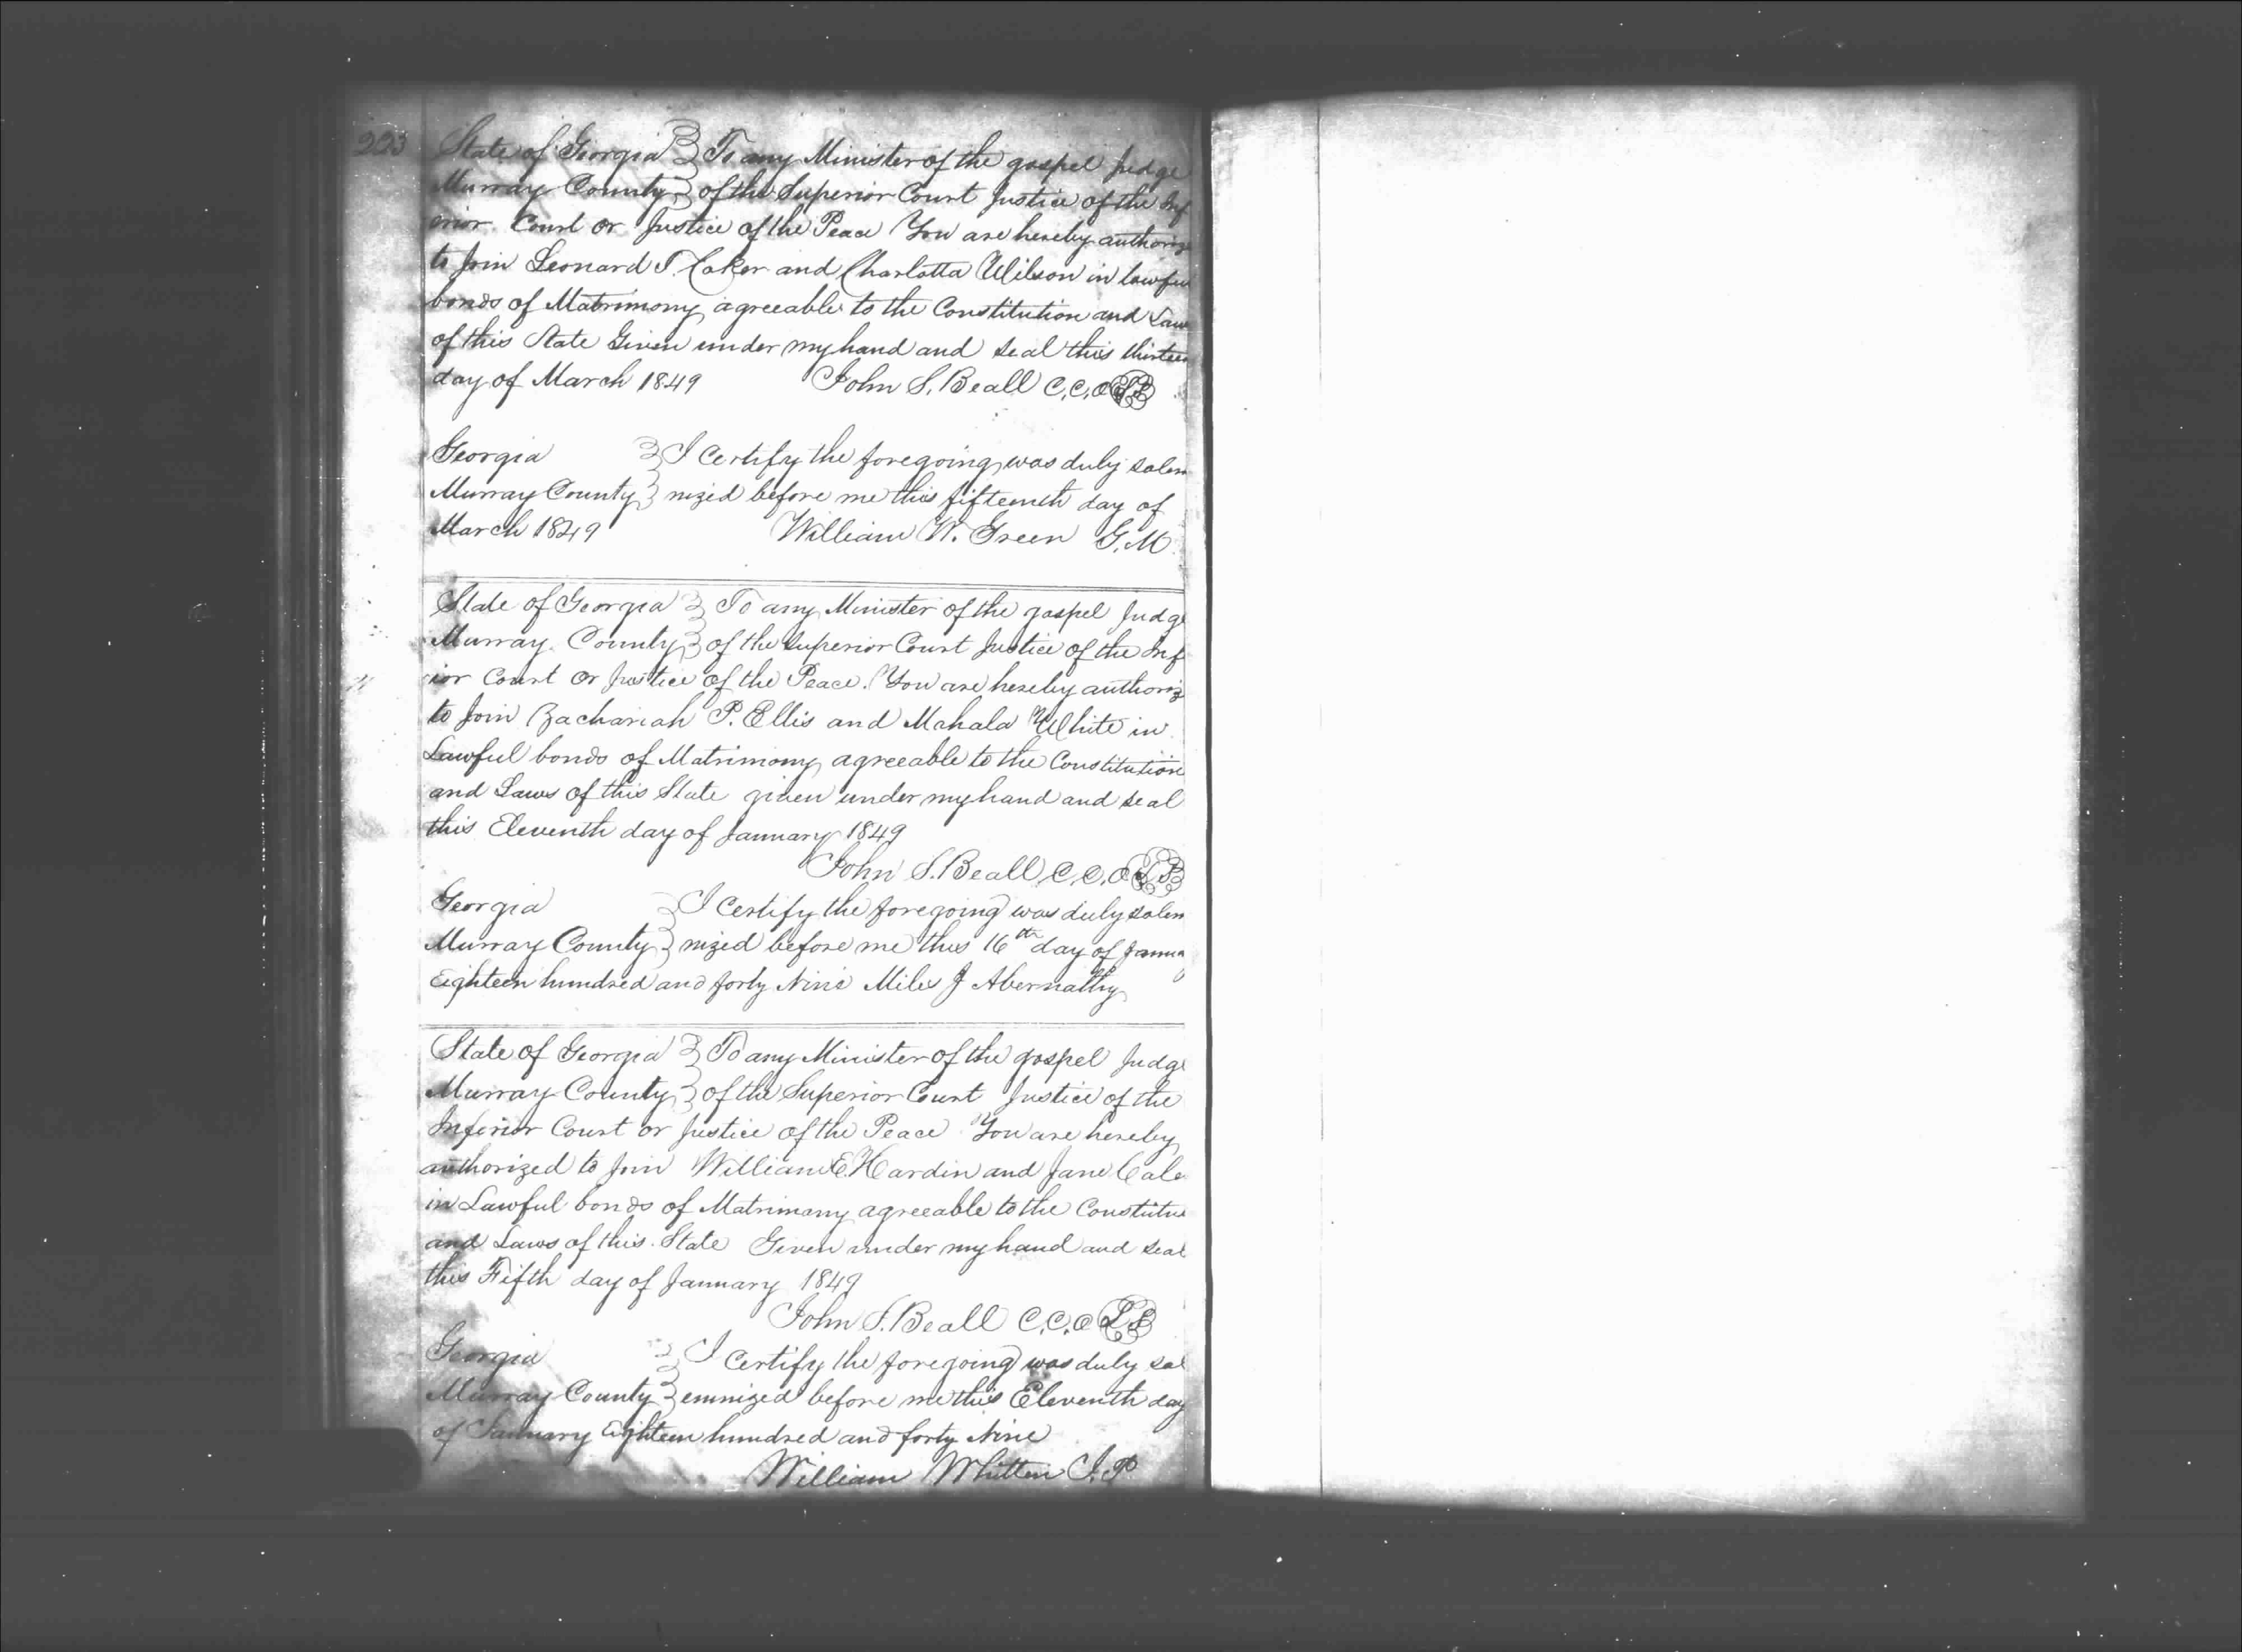 223
State of Georgia } To any Minister of the gospel Judge
Murray County } of the Superior Court Justice of the Inf
erior Court or Justice of the Peace You are hereby authoriz
to Join Leonard T. Coker and Charlotta Wilson in lawful
bonds of Matrimony agreeable to the Constitution and Laws
of this State Given under my hand and seal this thirteen
day of March 1849 John S. Beall C.C.O LS
Georgia } I Certify the foregoing was duly solem
Murray County } nized before me this fifteenth day of
March 1849 William W. Green G.M.
State of Georgia } To any Minister of the gospel Judge
Murray County } of the Superior Court Justice of the Inf
ior Court or Justice of the Peace. You are hereby authoriz
to Join Zachariah P. Ellis and Mahala White in
Lawful bonds of Matrimony agreeable to the Constitution
and Laws of this State given under my hand and seal
this Eleventh day of January 1849
John S. Beall C.C.O LS
Georgia } I Certify the foregoing was duly solem
Murray County } nized before me this 16th day of Janua
Eighteen hundred and forty Nine Miles J Abernathy
State of Georgia } To any Minister of the gospel Judge
Murray County } of the Superior Court Justice of the
Inferior Court or Justice of the Peace You are hereby
authorized to Join William E. Hardin and Jane Cale
in Lawful bonds of Matrimony agreeable to the Constitu
and Laws of this State Given under my hand and seal
this Fifth day of January 1849
John S. Beall C.C.O LS
Georgia } I Certify the foregoing was duly sol
Murray County } emnized before me this Eleventh day
of January Eighteen hundred and forty Nine
William Whitten J.P.